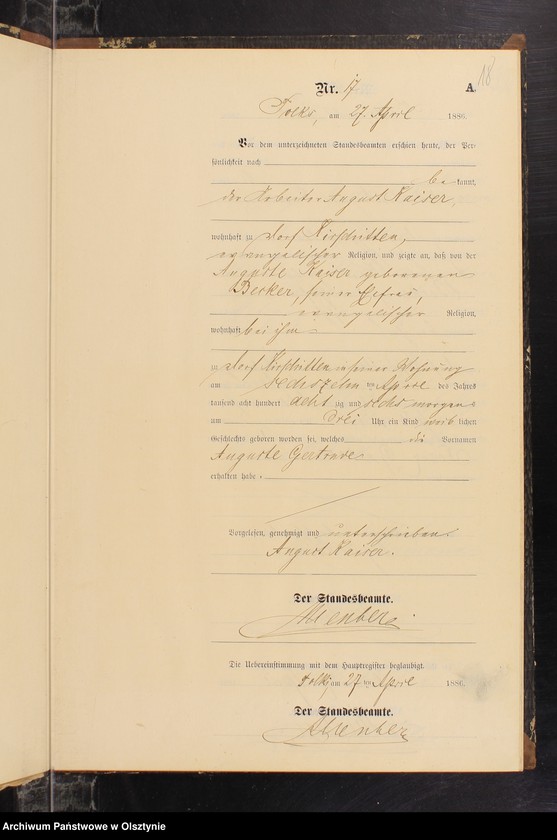 18
Nr. 17 A.
Tolks, am 27. April 1886.
Vor dem unterzeichneten Standesbeamten erschien heute, der Per-
sönlichkeit nach
be kannt,
der Arbeiter August Kaiser,
wohnhaft zu Dorf
evangelischer Religion, und zeigte an, daß von der
Auguste Kaiser geborenen
Becker, seiner Ehefrau,
evangelischer Religion,
wohnhaft bei ihm
zu Dorf in seiner Wohnung
am sechszehn ten April des Jahres
tausend acht hundert acht zig und sechs morgens
um drei Uhr ein Kind weib lichen
Geschlechts geboren worden sei, welches die Vornamen
Auguste Gertrude
erhalten habe
Vorgelesen, genehmigt und unterschrieben
August Kaiser.
Der Standesbeamte.
Die Uebereinstimmung mit dem Hauptregister beglaubigt.
Tolks am 27 ten April 1886.
Der Standesbeamte.
Archiwum Państwowe w Olsztynie